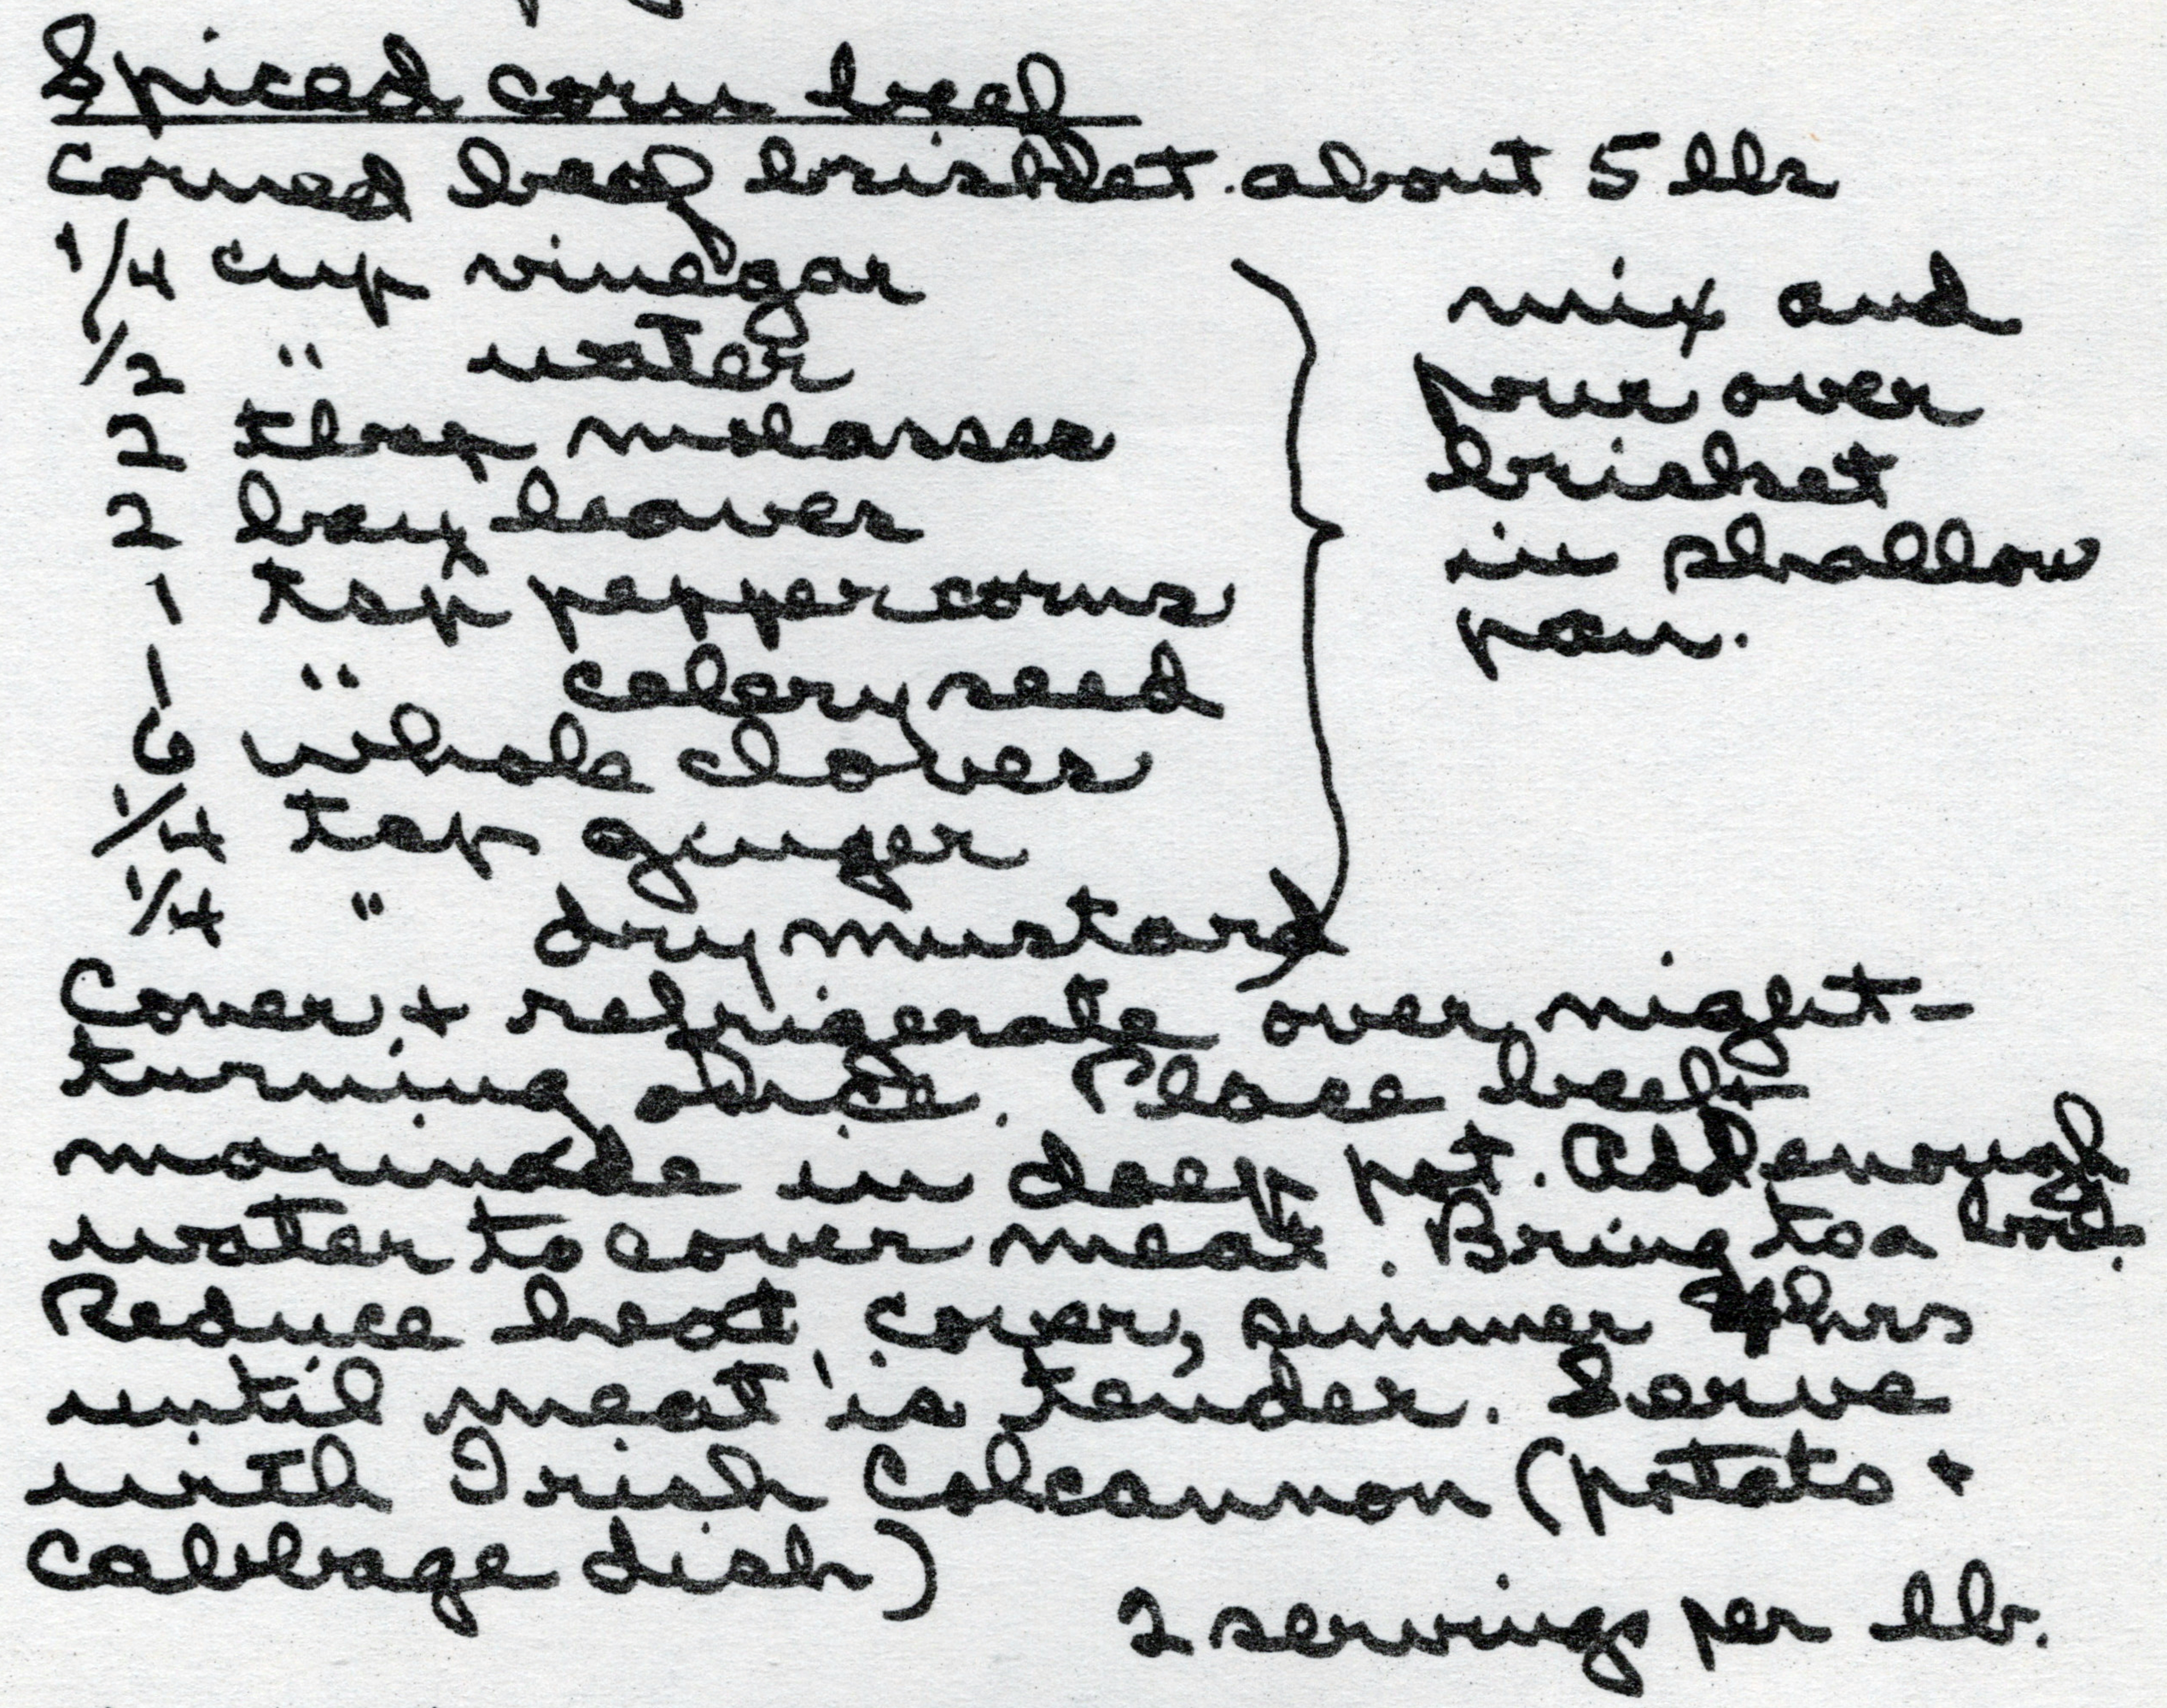 Spiced corn beef
Corned beef brisket. about 5 lbs
1/4 cup vinegar
1/2 " water
2 tbsp molasses
2 bay leaves
1 tsp peppercorns
1 " celery seed
6 whole cloves
1/4 tsp ginger
1/4 " dry mustard
mix and
pour over
brisket
in shallow
pan.
Cover + refrigerate over night -
turning once. Place beef +
marinade in deep pot. Add enough
water to cover meat. Bring to a boil.
Reduce heat, cover, simmer 4 hrs
until meat is tender. Serve
with Irish Colcannon (potato +
cabbage dish)
2 servings per lb.